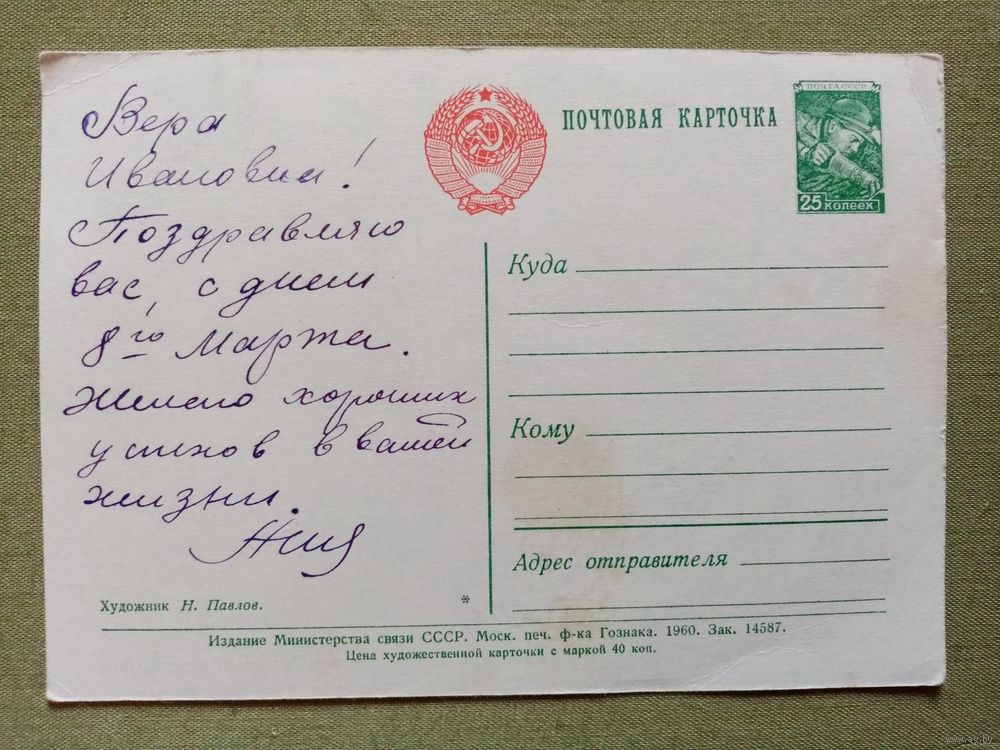 Вера
Ивановна!
Поздравляю
вас, с днем
8го Марта.
Желаю хороших
успехов в вашей
жизни.
ПОЧТОВАЯ КАРТОЧКА
ПОЧТА СССР
25 копеек
Куда
Кому
Адрес отправителя
Художник Н. Павлов.
*
Издание Министерства связи СССР. Моск. печ. ф-ка Гознака. 1960. Зак. 14587.
Цена художественной карточки с маркой 40 коп.
www.ay.by